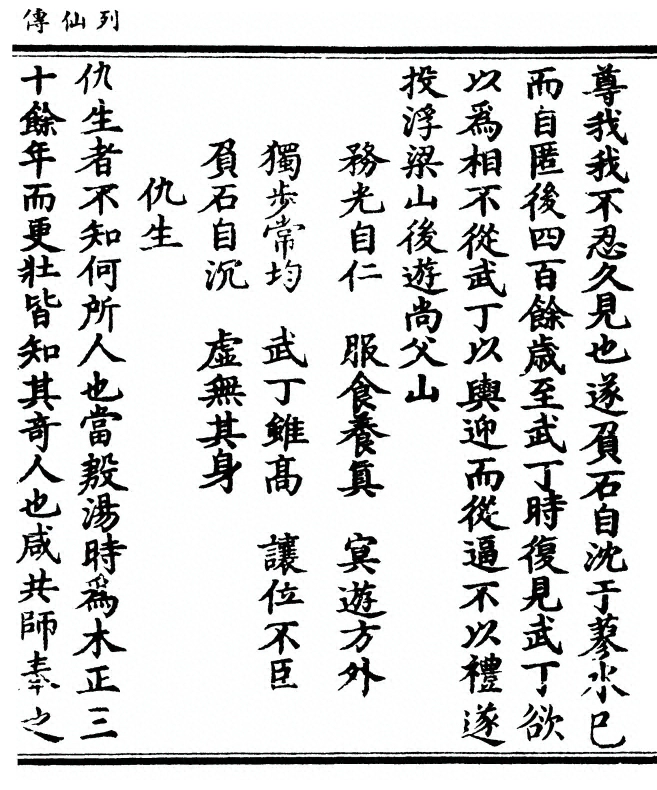 列仙傳
尊我我不忍久見也遂負石自沈于蓼水已
而自匿後四百餘歲至武丁時復見武丁欲
以爲相不從武丁以輿迎而從逼不以禮遂
投浮梁山後遊尚父山
務光自仁 服食養真 冥遊方外
獨步常均 武丁雖高 讓位不臣
負石自沉 虛無其身
仇生
仇生者不知何所人也當殷湯時爲木正三
十餘年而更壯皆知其奇人也咸共師奉之